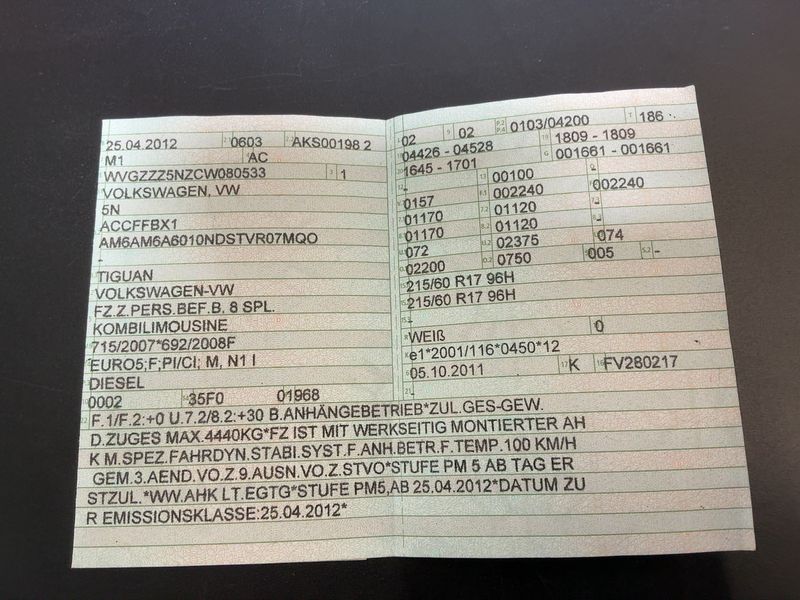 25.04.2012 0603 AKS00198 2
M1 AC
WVGZZZ5NZCW080533 1
VOLKSWAGEN, VW
5N
ACCFFBX1
AM6AM6A6010NDSTVR07MQO
-
TIGUAN
VOLKSWAGEN-VW
FZ.Z.PERS.BEF.B. 8 SPL.
KOMBILIMOUSINE
715/2007*692/2008F
EURO5;F;PI/CI; M, N1 I
DIESEL
0002 35F0 01968
02 02 0103/04200 186
04426 - 04528 1809 - 1809
1645 - 1701 001661 - 001661
- 00100 -
0157 002240 002240
01170 01120 -
01170 01120 -
072 02375 074
02200 0750 005 -
215/60 R17 96H
215/60 R17 96H
WEIß 0
e1*2001/116*0450*12
05.10.2011 K FV280217
F.1/F.2:+0 U.7.2/8.2:+30 B.ANHÄNGEBETRIEB*ZUL.GES-GEW.
D.ZUGES MAX.4440KG*FZ IST MIT WERKSEITIG MONTIERTER AH
K M.SPEZ.FAHRDYN.STABI.SYST.F.ANH.BETR.F.TEMP.100 KM/H
GEM.3.AEND.VO.Z.9.AUSN.VO.Z.STVO*STUFE PM 5 AB TAG ER
STZUL.*WW.AHK LT.EGTG*STUFE PM5,AB 25.04.2012*DATUM ZU
R EMISSIONSKLASSE:25.04.2012*